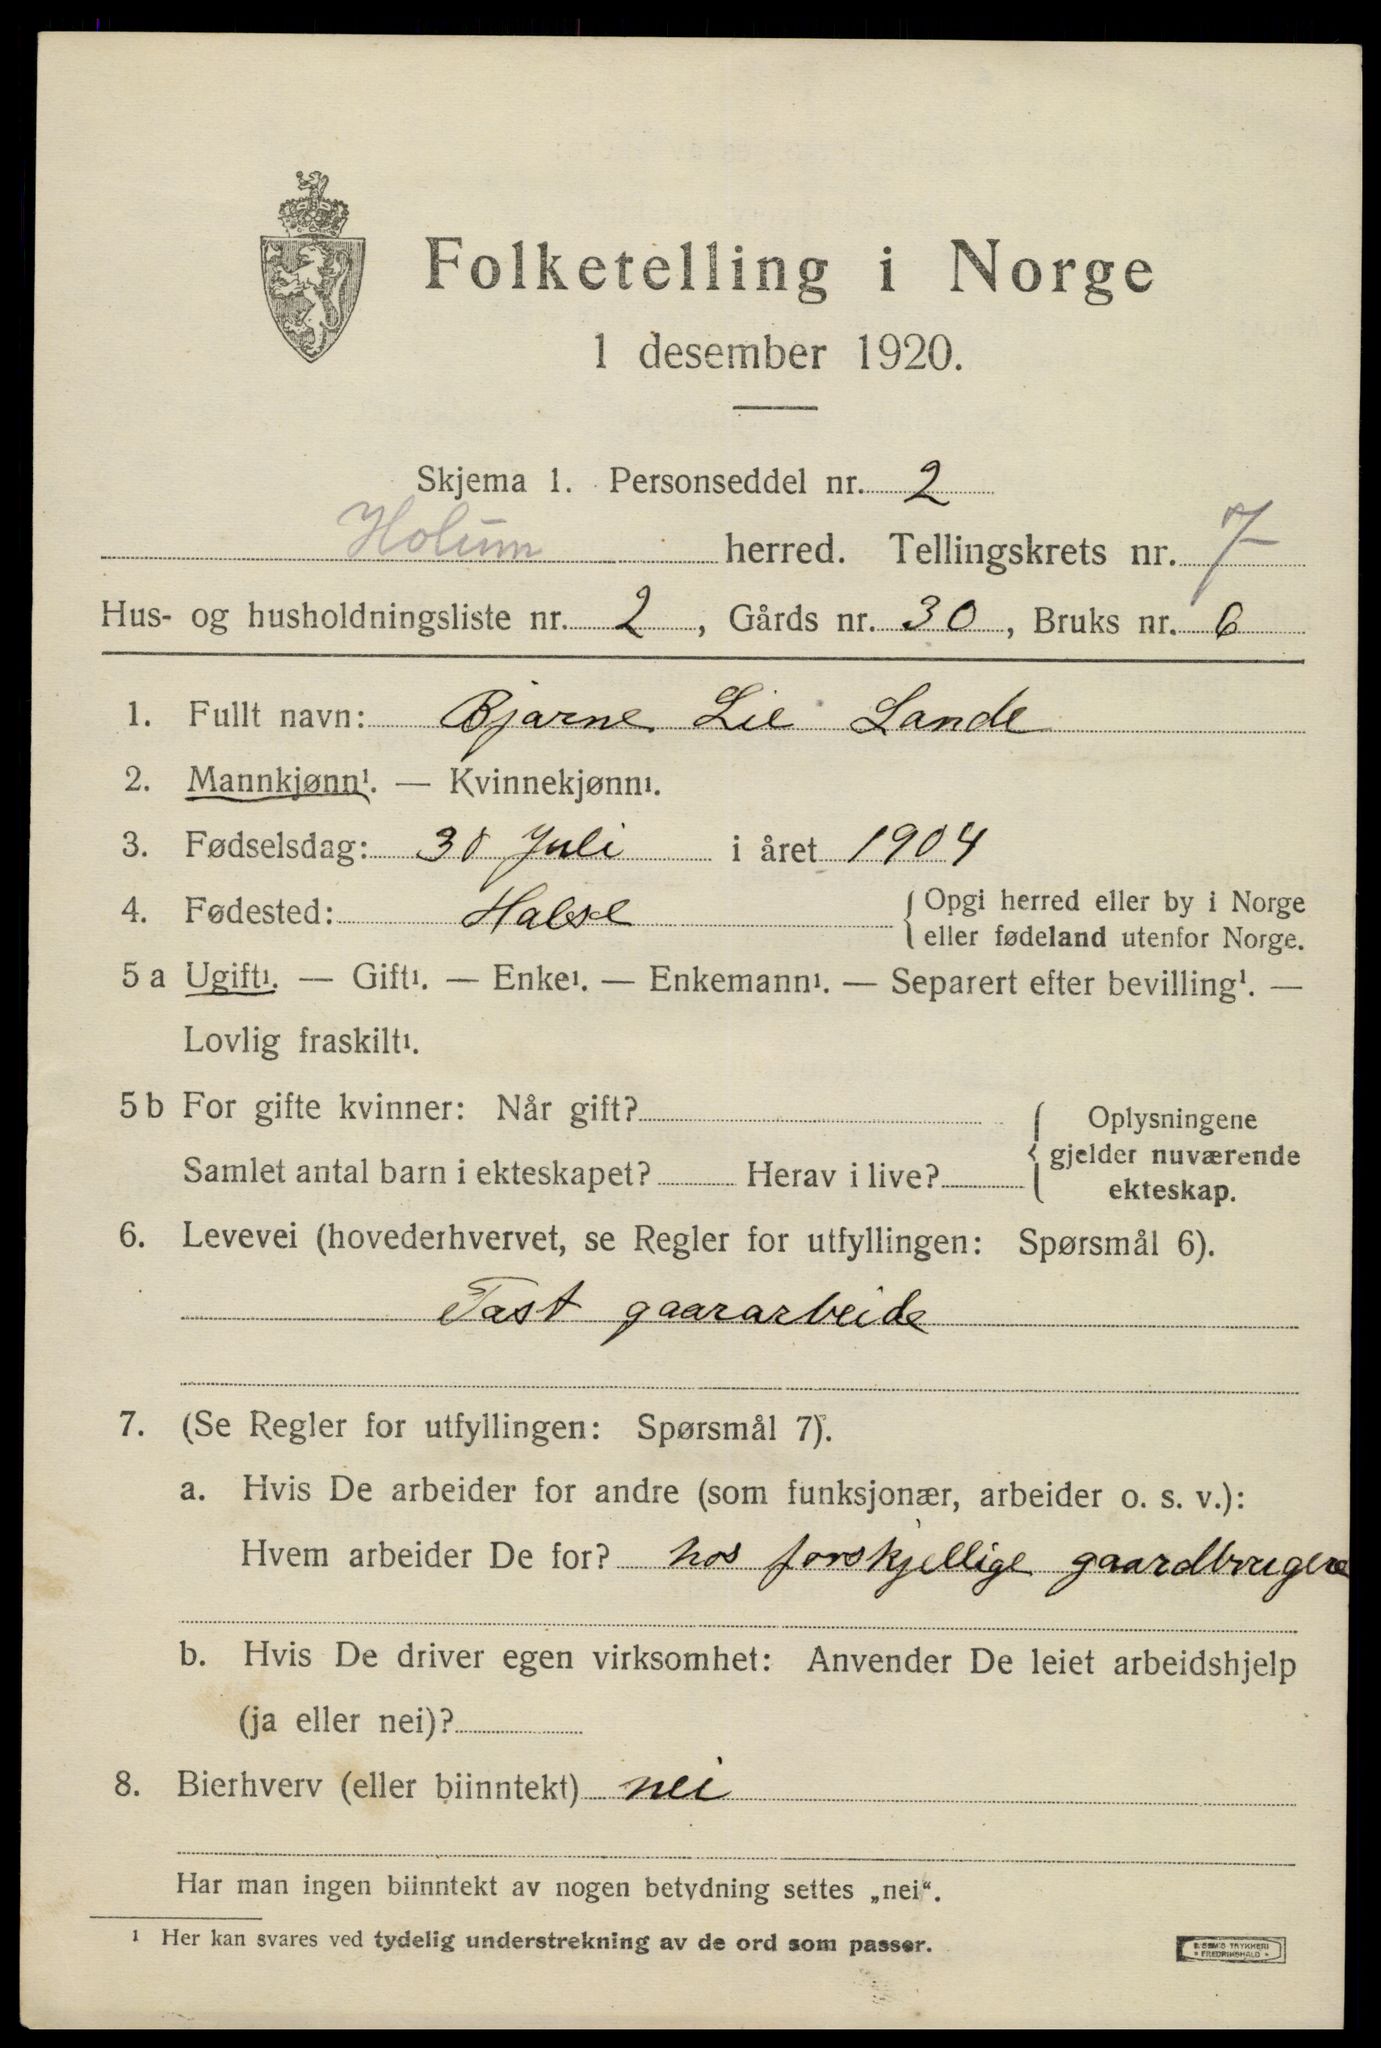 Folketelling i Norge
1 desember 1920.
Skjema 1. Personseddel nr. 2
Holum herred. Tellingskrets nr. 7
Hus- og husholdningsliste nr. 2, Gårds nr. 30, Bruks nr. 6
1. Fullt navn: Bjarne Lie Lande
2. Mannkjønn¹. — Kvinnekjønn¹.
3. Fødselsdag: 30 Juli i året 1904
4. Fødested: Halse { Opgi herred eller by i Norge
eller fødeland utenfor Norge.
5 a Ugift¹. — Gift¹. — Enke¹. — Enkemann¹. — Separert efter bevilling¹. —
Lovlig fraskilt¹.
5 b For gifte kvinner: Når gift?
Samlet antal barn i ekteskapet? Herav i live?
{ Oplysningene
gjelder nuværende
ekteskap.
6. Levevei (hovederhvervet, se Regler for utfyllingen: Spørsmål 6).
Fast gaararbeide
7. (Se Regler for utfyllingen: Spørsmål 7).
a. Hvis De arbeider for andre (som funksjonær, arbeider o. s. v.):
Hvem arbeider De for? hos forskjellige gaardbrugere
b. Hvis De driver egen virksomhet: Anvender De leiet arbeidshjelp
(ja eller nei)?
8. Bierhverv (eller biinntekt) nei
Har man ingen biinntekt av nogen betydning settes „nei“.
¹ Her kan svares ved tydelig understrekning av de ord som passer.
TRYKKERI
FREDRIKSHALD